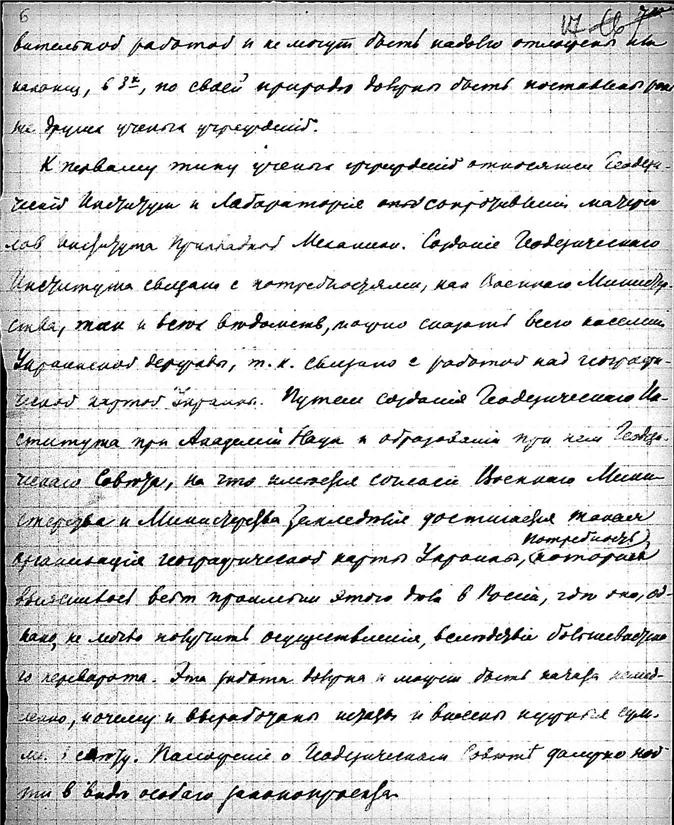 6
17
вательской работой и не могут быть надолго отложены или
наконец, в 3х, по своей природе должны быть поставлены
других ученых учреждений.
К первому типу ученых учреждений относятся Геодези-
ческий Институт и Лаборатория сопротивления матери
лов Института Прикладной Механики. Создание Геодезическаго
Института связано с потребностями, как Военнаго Министер-
ства, так и всех ведомств, можно сказать всего населения
Украинской державы, т. к. связано с работой над географи-
ческой картой Украины. Путем создания Геодезическаго Ин-
ститута при Академии Наук и образования при нем Геодези-
ческаго Совета, на что имеется согласие Военнаго Мини-
стерства и Министерства Земледелия достигается такая
организация географической карты Украины, которая
потребность
всего прошлого этого дела в России, где оно, од-
нако, не могло получить осуществления, вследствие большевистска-
го переворота. Эта работа должна и может быть начата немед-
ленно, почему и выработаны штаты и внесены нужныя сум-
мы в смету. Положение о Геодезическом Совете должно пой-
ти в виде особаго законопроекта.